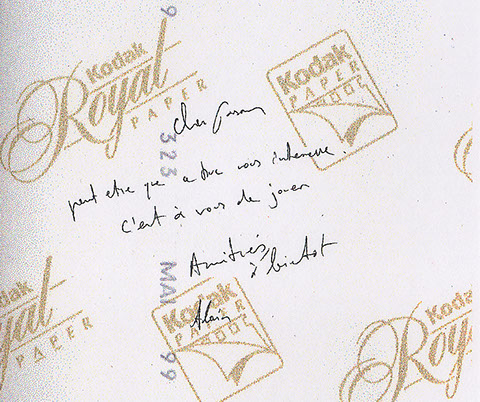 Kodak
Royal
PAPER
Kodak
PAPER
Cher
9 323 MAI 99
peut etre que vous interesse.
c'est à vous de jouer
Amitiés
à bientot
Alain
Kodak
Royal
PAPER
Kodak
PAPER
Kodak
Royal